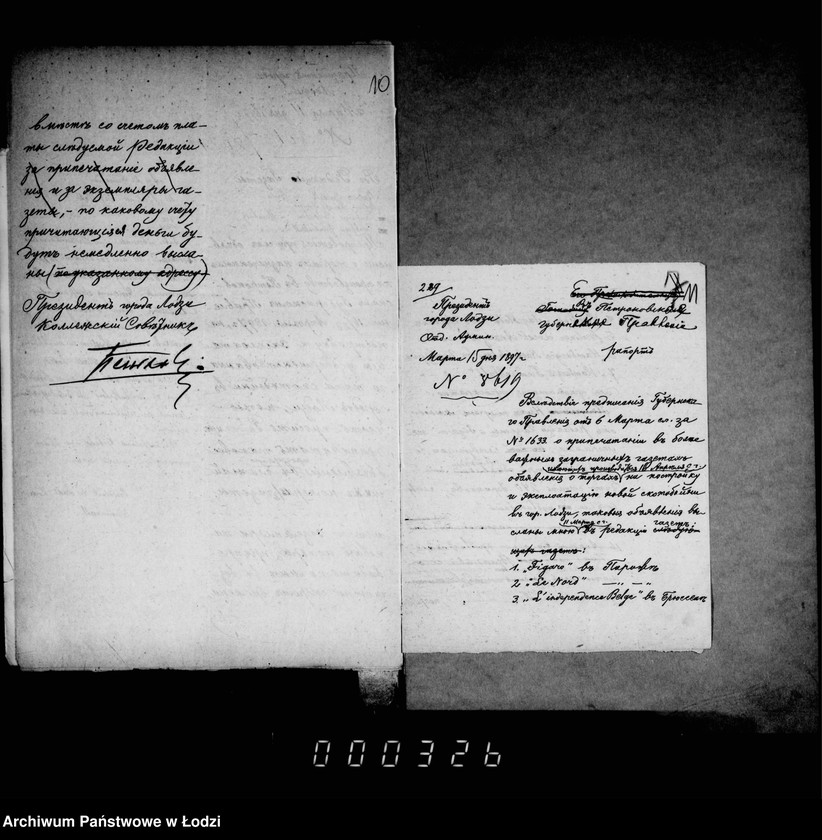 10
вмѣстѣ со счетомъ пла-
ты слѣдуемой Редакціи
за припечатаніе объявле-
нія и за экземпляры га-
зеты,- по каковому счету
причитающіяся деньги бу-
дутъ немедленно высла-
ны (по указанному адресу)
Президентъ города Лодзи
Коллежскій Совѣтникъ
11
Президентъ
города Лодзи
Отд. Админ.
Марта 15 дня 1897 г.
№ 8619
Въ Петроковское
Губернское Правленіе
рапортъ
Вслѣдствіе предписанія Губернска-
го Правленія отъ 6 Марта с.г. за
№ 1633 о припечатаніи въ болѣе
важныхъ заграничныхъ газетахъ
объявленія о торгахъ на постройку
и эксплоатацію новой скотобойни
въ гор. Лодзи, таковыя объявленія вы-
сланы мною 11 Марта с.г. въ редакціи газетъ
1. „Figaro" въ Парижѣ
2. „Le Nord" —„—
3. „L'independence Belge" въ Брюсселѣ
000326
Archiwum Państwowe w Łodzi